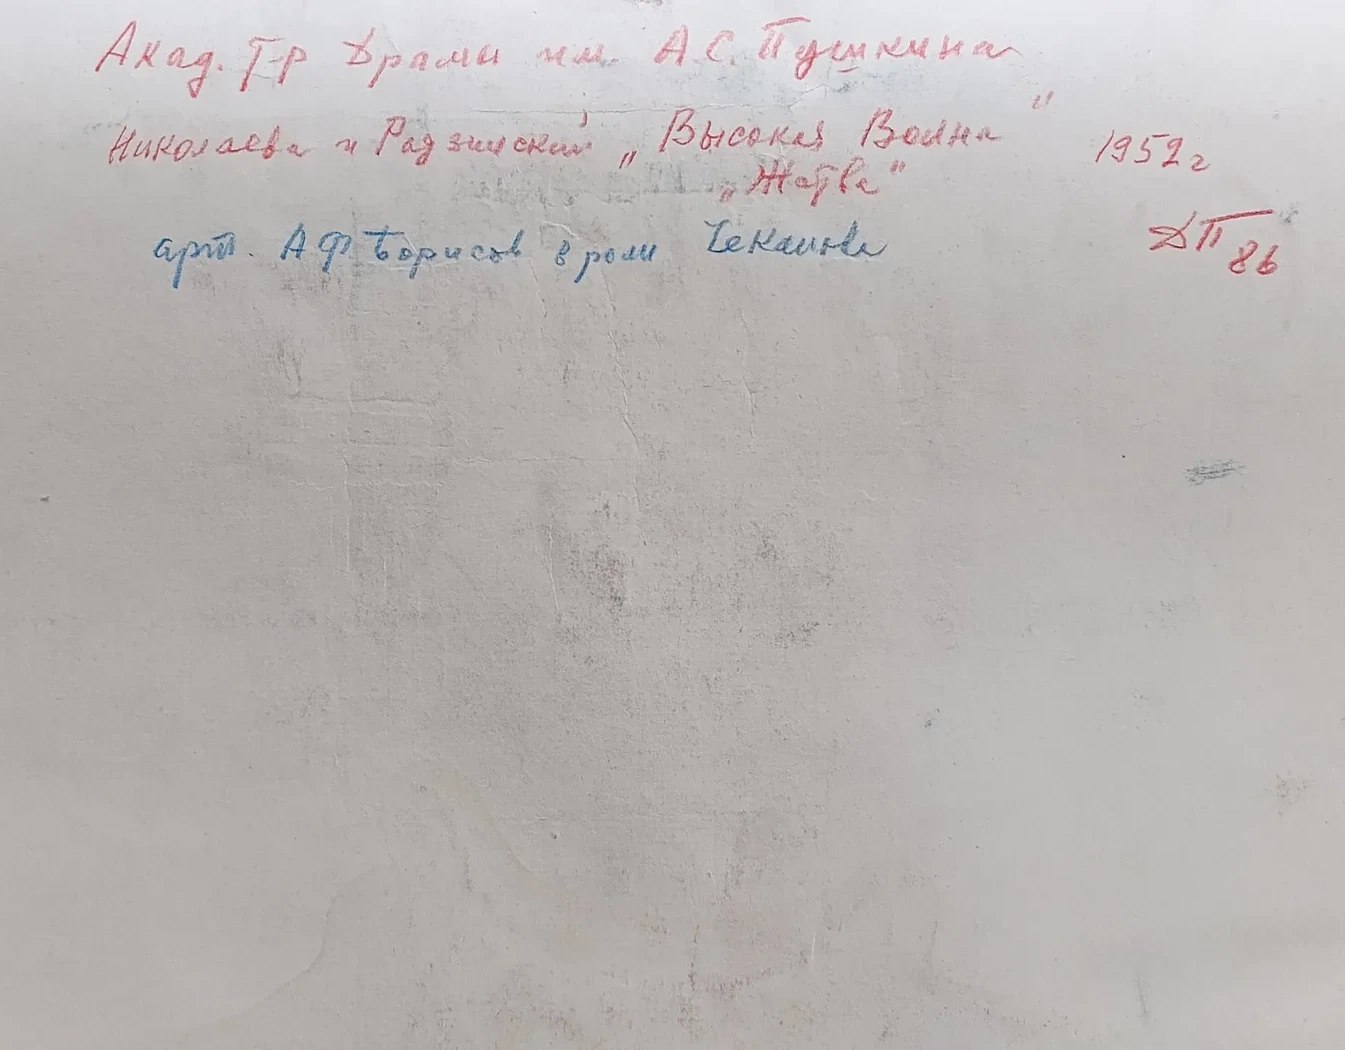 Акад. Т-р Драмы им. А.С. Пушкина
Николаева и Радзинский „Высокая Волна" 1952 г
„Жатва"
арт. А Ф Борисов в роли Чеканова
ДП 86